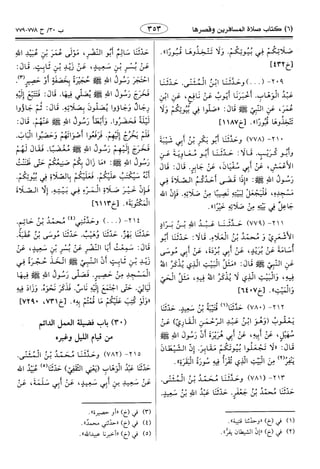 (٦) كتاب صلاة المسافرين وقصرها
٣٥٣
ب /٣٠ ح ٧٧٨-٧٧٩
صلاتكم في بيوتكم. ولا تتخذوها قبورًا».
[ح٤٣٢]
٢٠٩- (...) وحدثنا ابن المثنى. حدثنا
عبد الوهاب. أخبرنا أيوب عن نافع، عن ابن
عمر، عن النبي ﷺ قال: «صلوا في بيوتكم ولا
تتخذوها قبورًا». [ح١١٨٧]
٢١٠- (٧٧٨) وحدثنا أبو بكر بن أبي شيبة
وأبو كريب. قالا: حدثنا أبو معاوية عن
الأعمش، عن أبي سفيان، عن جابر. قال: قال
رسول الله ﷺ: «إذا قضى أحدكم الصلاة في
مسجده، فليجعل لبيته نصيبًا من صلاته. فإن الله
جاعل في بيته من صلاته خيرًا».
٢١١- (٧٧٩) حدثنا عبد الله بن براد
الأشعري ومحمد بن العلاء. قالا: حدثنا أبو
أسامة عن بريد، عن أبي بردة، عن أبي موسى
عن النبي ﷺ قال: «مثل البيت الذي يذكر الله
فيه، والبيت الذي لا يذكر الله فيه، مثل الحي
والميت». [ح٦٤٠٧]
٢١٢- (٧٨٠) حدثنا(١) قتيبة بن سعيد. حدثنا
يعقوب (وهو ابن عبد الرحمن القاري) عن
سهيل، عن أبيه، عن أبي هريرة أن رسول الله ﷺ
قال: «لا تجعلوا بيوتكم مقابر. إن الشيطان
ينفر(٢) من البيت الذي تقرأ فيه سورة البقرة».
٢١٣- (٧٨١) وحدثنا محمد بن المثنى.
حدثنا محمد بن جعفر. حدثنا عبد الله بن سعيد.
(١) في (خ) «وحدثنا قتيبة».
(٢) في (خ) «إن الشيطان يفر».
حدثنا سالم أبو النضر، مولى عمر بن عبيد الله
عن بسر بن سعيد، عن زيد بن ثابت. قال:
احتجر رسول الله ﷺ حجيرة بخصفة أو حصير(٣).
فخرج رسول الله ﷺ يصلي فيها. قال: فتتبع إليه
رجال وجاؤوا يصلون بصلاته. قال: ثم جاؤوا
ليلة فحضروا. وأبطأ رسول الله ﷺ عنهم. قال:
فلم يخرج إليهم. فرفعوا أصواتهم وحصبوا الباب.
فخرج إليهم رسول الله ﷺ مغضبًا. فقال لهم
رسول الله ﷺ: «ما زال بكم صنيعكم حتى ظننت
أنه سيكتب عليكم. فعليكم بالصلاة في بيوتكم.
فإن خير صلاة المرء في بيته. إلا الصلاة
المكتوبة». [ح٦١١٣]
٢١٤- (...) وحدثني(٤) محمد بن حاتم.
حدثنا بهز. حدثنا وهيب. حدثنا موسى بن عقبة.
قال: سمعت أبا النضر عن بسر بن سعيد، عن
زيد بن ثابت أن النبي ﷺ اتخذ حجرة في
المسجد من حصير. فصلى رسول الله ﷺ فيها
ليالي. حتى اجتمع إليه ناس. فذكر نحوه. وزاد فيه
«ولو كتب عليكم ما قمتم به». [ح٧٣١، ٧٢٩٠]
(٣٠) باب فضيلة العمل الدائم
من قيام الليل وغيره
٢١٥- (٧٨٢) وحدثنا محمد بن المثنى.
حدثنا عبد الوهاب (يعني الثقفي) حدثنا(٥) عبيد الله
عن سعيد بن أبي سعيد، عن أبي سلمة، عن
(٣) في (خ) «أو حصيرة».
(٤) في (خ) «حدثني محمد».
(٥) في (خ) «أخبرنا عبيدالله».